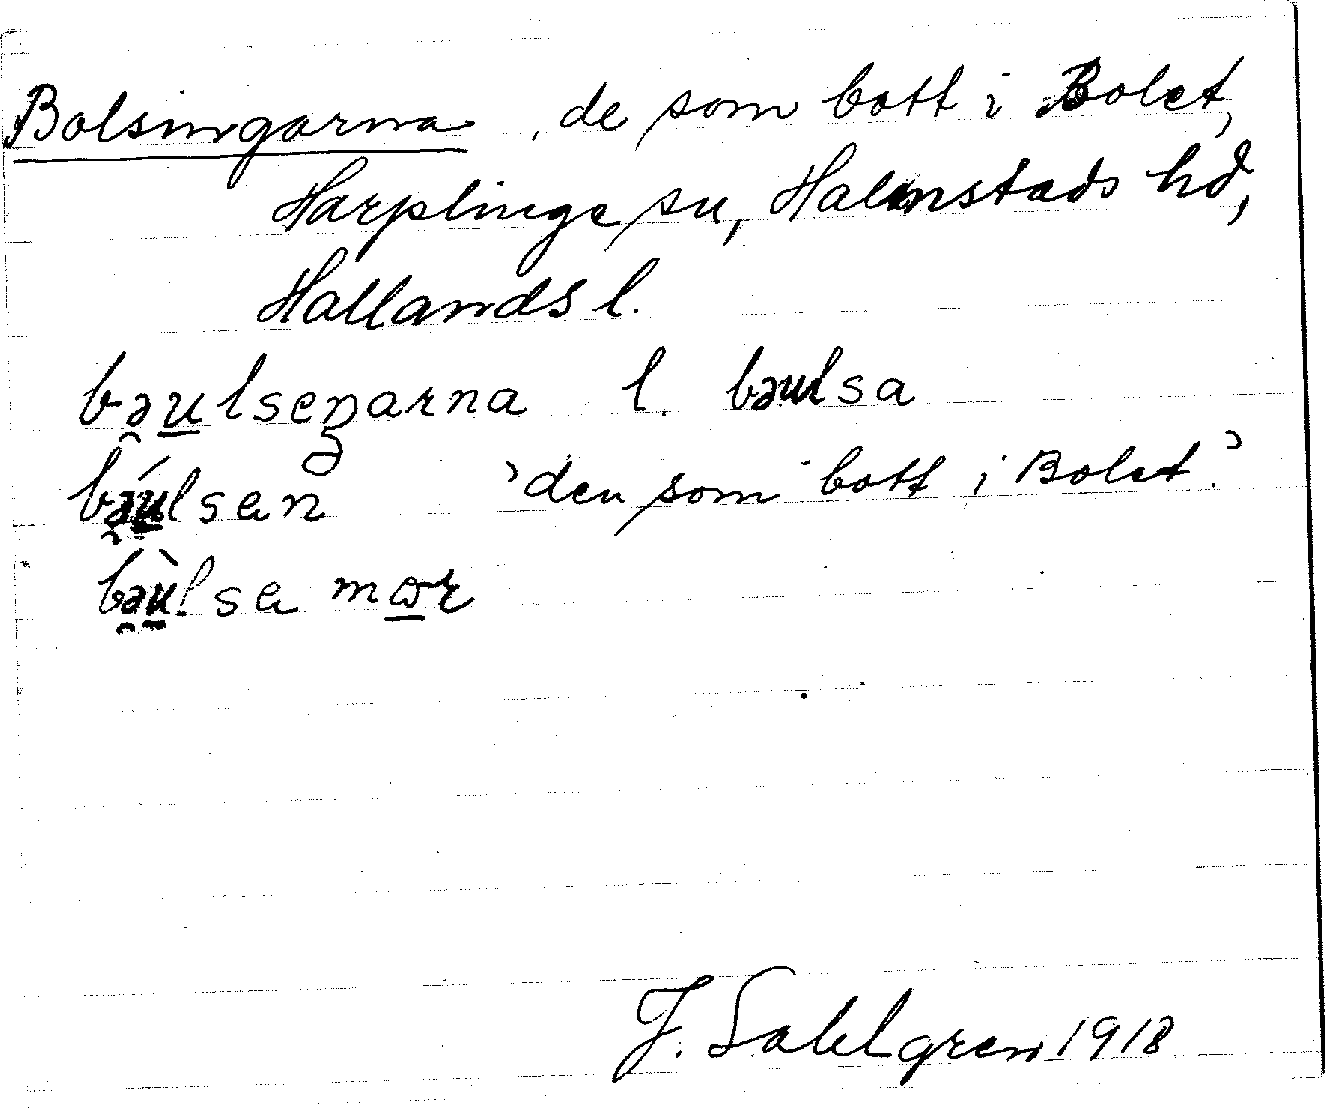 Bolsingarna, de som bott i Bolet,
Harplinge sn, Halmstads hd,
Hallands l.
bəulseŋarna l. bəulsa
bə́ulsen 'den som bott i Bolet'
bəùlsa mor
J. Sahlgren 1918